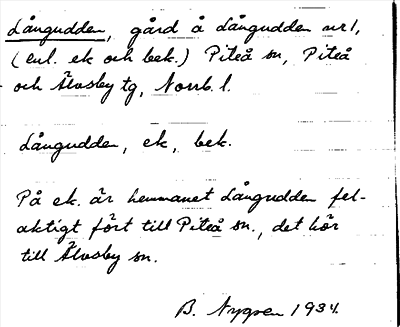 Långudden, gård å Långudden nr 1,
(enl. ek och bek.) Piteå sn, Piteå
och Älvsby tg, Norrb. l.
Långudden, ek, bek.
På ek. är hemmanet Långudden fel-
aktigt fört till Piteå sn., det hör
till Älvsby sn.
B. Nygren 1934.